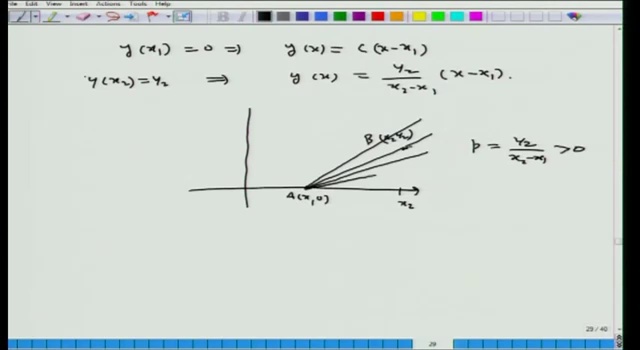 File Edit View Insert Actions Tools Help
y(x₁) = 0 ⇒ y(x) = C(x-x₁)
y(x₂) = y₂ ⇒ y(x) = y₂/(x₂-x₁) (x-x₁).
B(x₂,y₂)
p = y₂/(x₂-x₁) > 0
A(x₁,0)
x₂
29 / 40
29